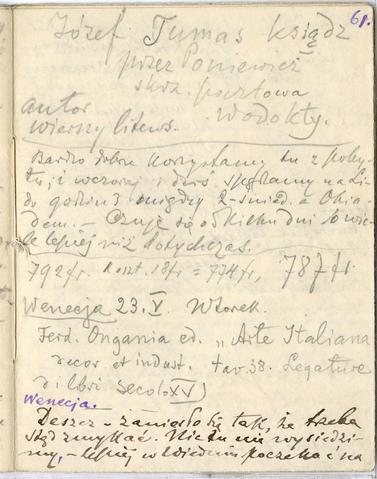 61.
Józef Tumas ksiądz
przez Poniewież
skrz. pocztowa
autor Wodokty.
wierszy litews.
Bardzo dobrze korzystamy tu z poby-
tu, i wczoraj i dziś spędzamy na Li-
do godzin 3 między 2-śniad. a Obia-
dem. — Czuję się od kilku dni o wie-
le lepiej niż dotychczas.
792 fr. Koszt. 18 fr = 774 fr, 787 fr.
Wenecja 23. V. Wtorek.
Ferd. Ongania ed. „Arte Italiana
decor et indust. tav. 38. Legature
di libri secolo XV)
Wenecja.
Deszcz - zaniosło się tak, że trzeba
stąd zmykać. Nic tu nie wysiedzi-
my, - lepiej w Wiedniu poczekać na